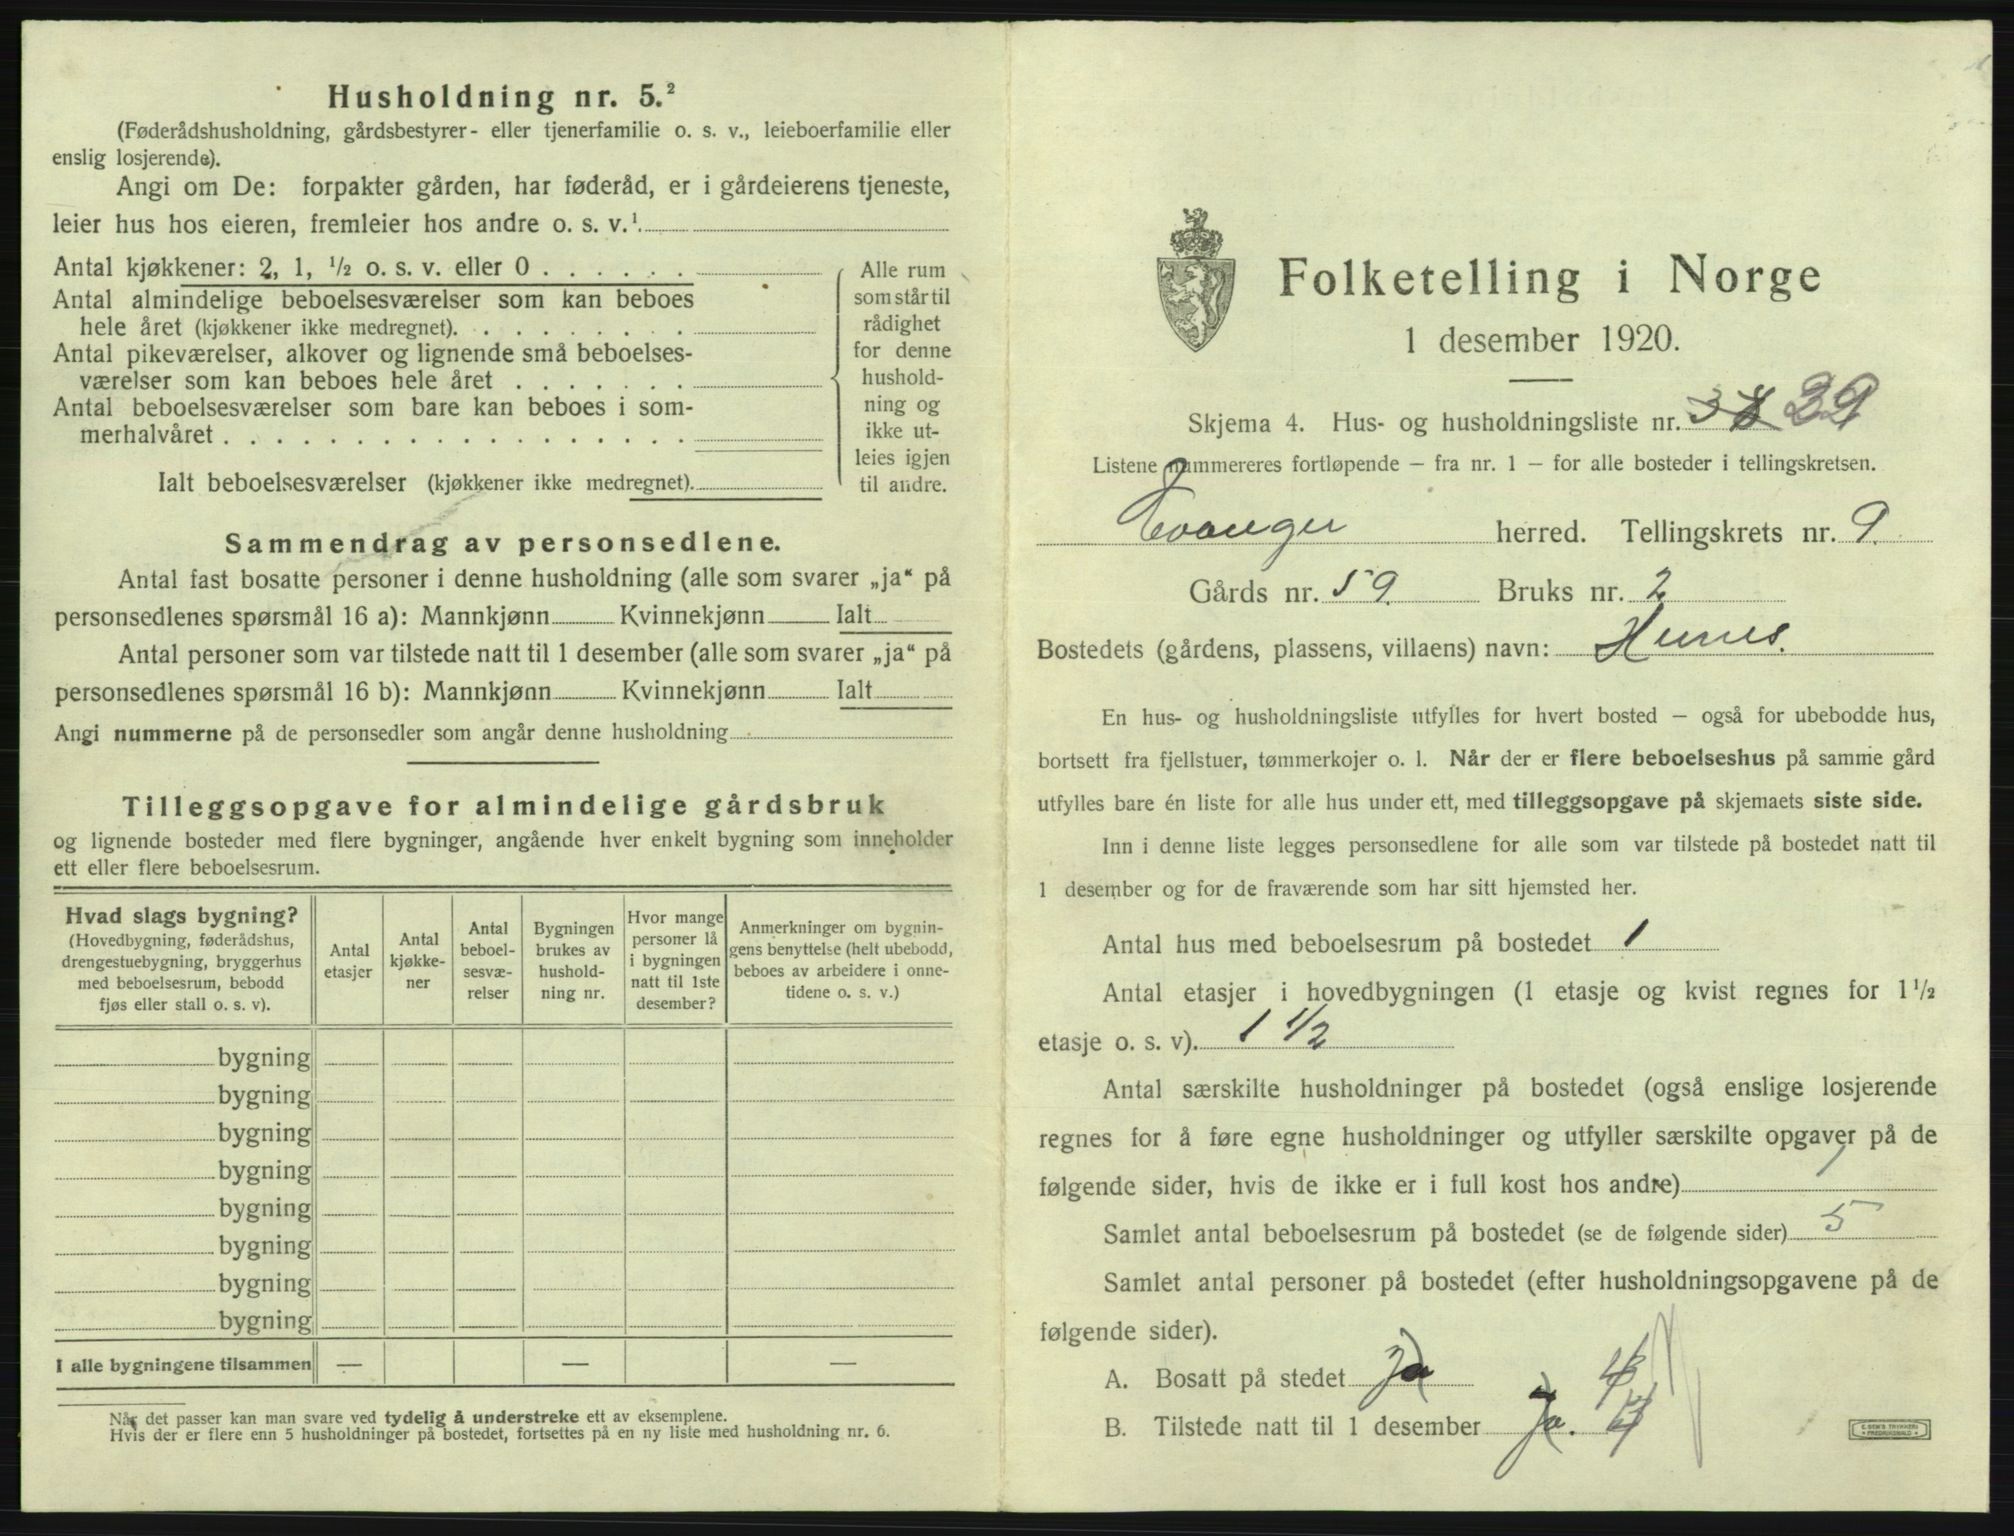 Husholdning nr. 5.²
(Føderådshusholdning, gårdsbestyrer- eller tjenerfamilie o. s. v., leieboerfamilie eller
enslig losjerende).
Angi om De: forpakter gården, har føderåd, er i gårdeierens tjeneste,
leier hus hos eieren, fremleier hos andre o. s. v.¹
Antal kjøkkener: 2, 1, ½ o. s. v. eller 0 . . . . . .
Antal almindelige beboelsesværelser som kan beboes
hele året (kjøkkener ikke medregnet). . . . . . . . .
Antal pikeværelser, alkover og lignende små beboelses-
værelser som kan beboes hele året . . . . . . .
Antal beboelsesværelser som bare kan beboes i som-
merhalvåret . . . . . . . . . . . . . . . . .
Ialt beboelsesværelser (kjøkkener ikke medregnet).
Alle rum
som står til
rådighet
for denne
hushold-
ning og
ikke ut-
leies igjen
til andre.
Sammendrag av personsedlene.
Antal fast bosatte personer i denne husholdning (alle som svarer „ja“ på
personsedlenes spørsmål 16 a): Mannkjønn Kvinnekjønn Ialt
Antal personer som var tilstede natt til 1 desember (alle som svarer „ja“ på
personsedlenes spørsmål 16 b): Mannkjønn Kvinnekjønn Ialt
Angi nummerne på de personsedler som angår denne husholdning
Tilleggsopgave for almindelige gårdsbruk
og lignende bosteder med flere bygninger, angående hver enkelt bygning som inneholder
ett eller flere beboelsesrum.
Hvad slags bygning?
(Hovedbygning, føderådshus,
drengestuebygning, bryggerhus
med beboelsesrum, bebodd
fjøs eller stall o. s. v).
Antal
etasjer
Antal
kjøkke-
ner
Antal
beboel-
sesvæ-
relser
Bygningen
brukes av
hushold-
ning nr.
Hvor mange
personer lå
i bygningen
natt til 1ste
desember?
Anmerkninger om bygnin-
gens benyttelse (helt ubebodd,
beboes av arbeidere i onne-
tidene o. s. v.)
bygning
bygning
bygning
bygning
bygning
bygning
bygning
bygning
I alle bygningene tilsammen — — —
Når det passer kan man svare ved tydelig å understreke ett av eksemplene.
Hvis der er flere enn 5 husholdninger på bostedet, fortsettes på en ny liste med husholdning nr. 6.
Folketelling i Norge
1 desember 1920.
Skjema 4. Hus- og husholdningsliste nr. 38 39
Listene nummereres fortløpende – fra nr. 1 – for alle bosteder i tellingskretsen.
Evanger herred. Tellingskrets nr. 9.
Gårds nr. 59. Bruks nr. 2
Bostedets (gårdens, plassens, villaens) navn: Hernes.
En hus- og husholdningsliste utfylles for hvert bosted – også for ubebodde hus,
bortsett fra fjellstuer, tømmerkojer o. l. Når der er flere beboelseshus på samme gård
utfylles bare én liste for alle hus under ett, med tilleggsopgave på skjemaets siste side.
Inn i denne liste legges personsedlene for alle som var tilstede på bostedet natt til
1 desember og for de fraværende som har sitt hjemsted her.
Antal hus med beboelsesrum på bostedet 1
Antal etasjer i hovedbygningen (1 etasje og kvist regnes for 1½
etasje o. s. v). 1 ½
Antal særskilte husholdninger på bostedet (også enslige losjerende
regnes for å føre egne husholdninger og utfyller særskilte opgaver på de
følgende sider, hvis de ikke er i full kost hos andre) 1
Samlet antal beboelsesrum på bostedet (se de følgende sider) 5
Samlet antal personer på bostedet (efter husholdningsopgavene på de
følgende sider).
A. Bosatt på stedet Ja
B. Tilstede natt til 1 desember Ja.